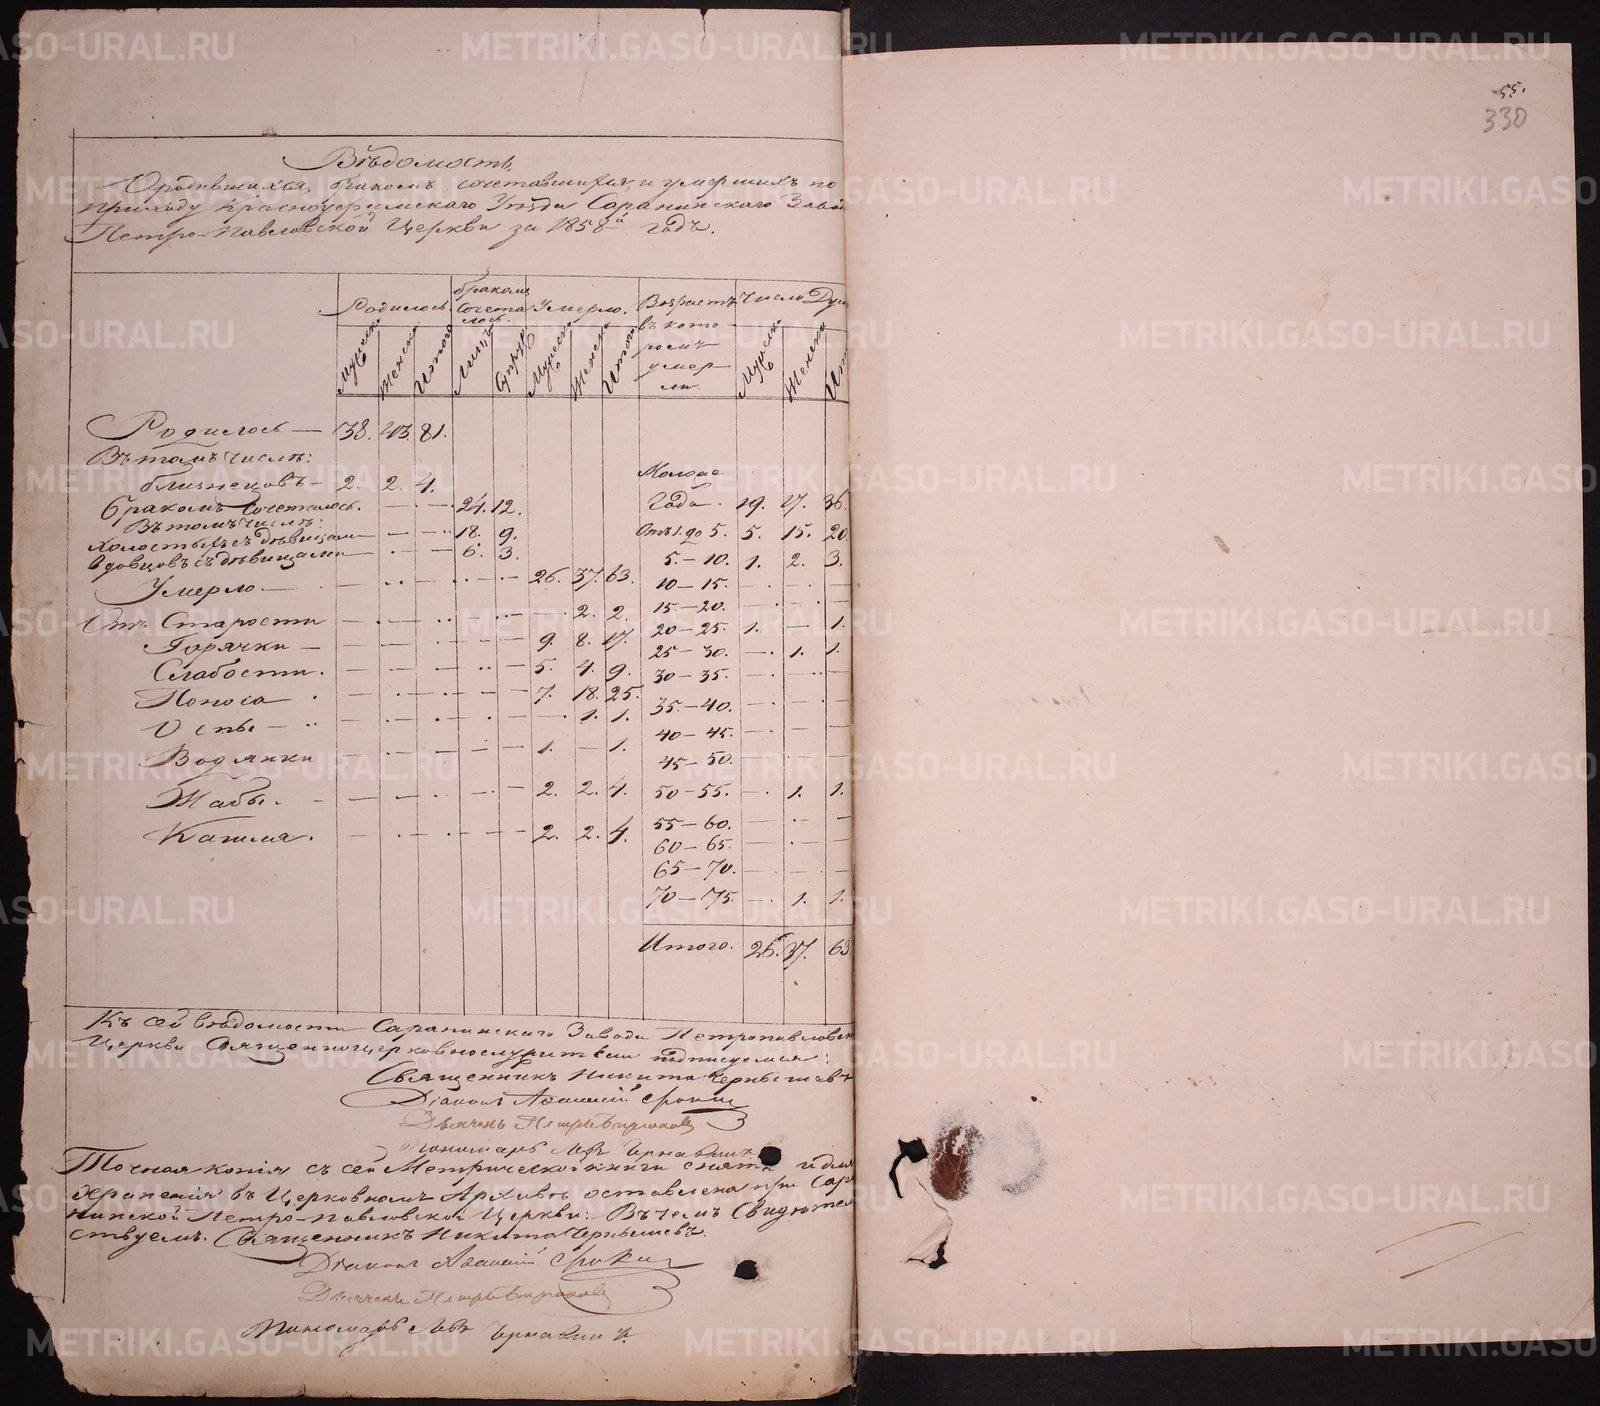 55.
330
Вѣдомость,
О родившихся, бракомъ сочетавшихся, и умершихъ по
приходу Красноуфимскаго Уѣзда Саранинскаго Заво
Петро-Павловской Церкви за 1858й годъ.
Родилось. бракомъ сочеталось. Умерло. Возрастъ въ которомъ умерли. Число Душ
Мужеска Женска Итого Лицъ Супруж Мужеска Женска Итого Мужеска Женска Ит
Родилось — 38. 43. 81.
Въ томъ числѣ:
близнецовъ — 2. 2. 4. Молодѣ
бракомъ сочеталось. — · — 24. 12. Года. 19. 17. 36.
Въ томъ числѣ:
холостыхъ съ дѣвицам — — 18. 9. Отъ 1. до 5. 5. 15. 20.
вдовцовъ съ дѣвицами — — 6. 3. 5. — 10. 1. 2. 3.
Умерло. — 26. 37. 63. 10 — 15. — — —
Отъ Старости — 2. 2. 15. — 20. — — —
Горячки — 9. 8. 17. 20 — 25. 1. — 1.
Слабости. — 5. 4. 9. 25 — 30. — 1. 1.
Поноса — 7. 18. 25. 30 — 35. — — —
Оспы — 1. 1. 35. — 40. — — —
Водянки — 1. — 1. 40 — 45. — — —
45 — 50. — — —
Жабы. — 2. 2. 4. 50 — 55. — 1. 1.
Кашля. — 2. 2. 4. 55 — 60. — — —
60 — 65. — — —
65 — 70. — — —
70 — 75. — 1. 1.
Итого. 26. 37. 63
Къ сей вѣдомости Саранинскаго Завода Петропавловск
Церкви Священноцерковнослужители подписуемся:
Священникъ Никита Чернышевъ
Діаконъ
Дьячекъ Петръ
Пономарь Левъ
Точная копія съ сей Метрической книги снята и для
храненія въ Церковномъ Архивѣ оставлена при Сар
нинской Петро-Павловской Церкви. Въ чемъ Свидѣтел
ствуемъ. Священникъ Никита Чернышевъ.
Діаконъ
Дьячекъ Петръ
Пономарь Левъ
METRIKI.GASO-URAL.RU